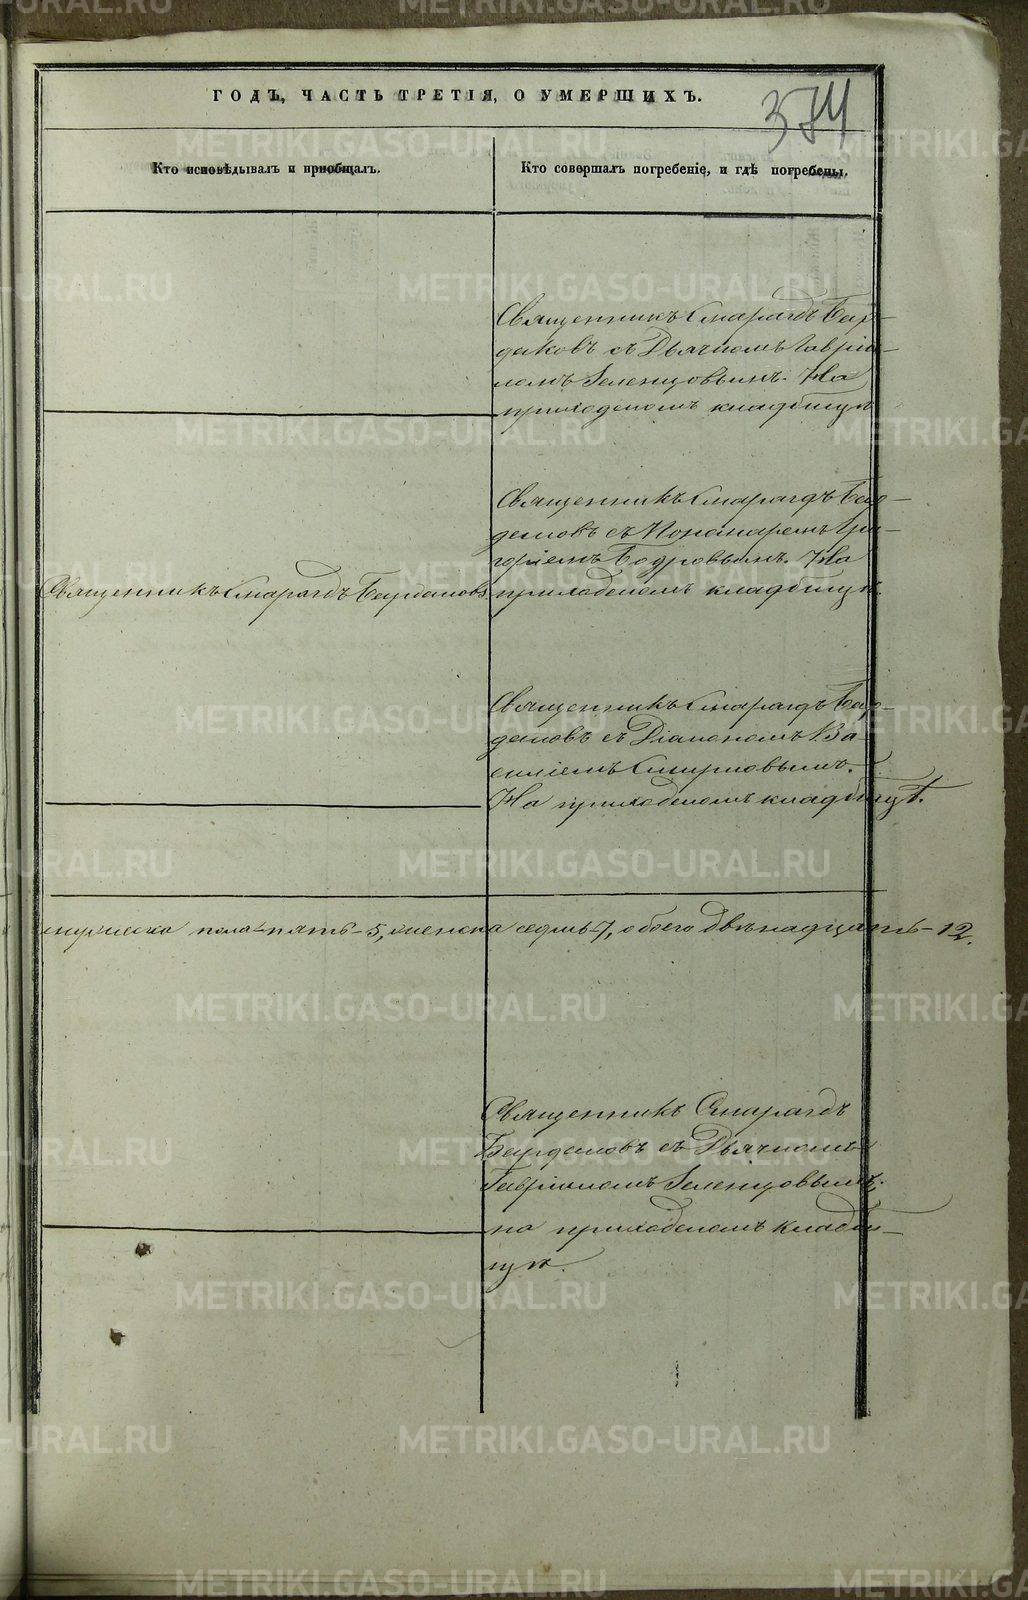 374
ГОДЪ, ЧАСТЬ ТРЕТІЯ, О УМЕРШИХЪ.
Кто исповѣдывалъ и пріобщалъ.
Кто совершалъ погребеніе, и гдѣ погребены.
Священникъ Смарагдъ Бир-
даковъ съ Дьячкомъ Гавріи-
ломъ Зеленцовымъ. На
приходскомъ кладбищѣ
Священникъ Смарагдъ
съ Пономаремъ
Бодровымъ. На
приходскомъ кладбищѣ.
Священникъ Смарагдъ
Священникъ Смарагдъ
съ Діакономъ Ва-
силіемъ Смирновымъ.
На приходскомъ кладбищѣ.
мужеска пола пять-5, женска седмь-7, обоего двѣнадцать-12.
Священникъ Смарагдъ
съ Дьячкомъ
Гавріиломъ Зеленцовымъ;
на приходскомъ кладби-
щѣ.
METRIKI.GASO-URAL.RU